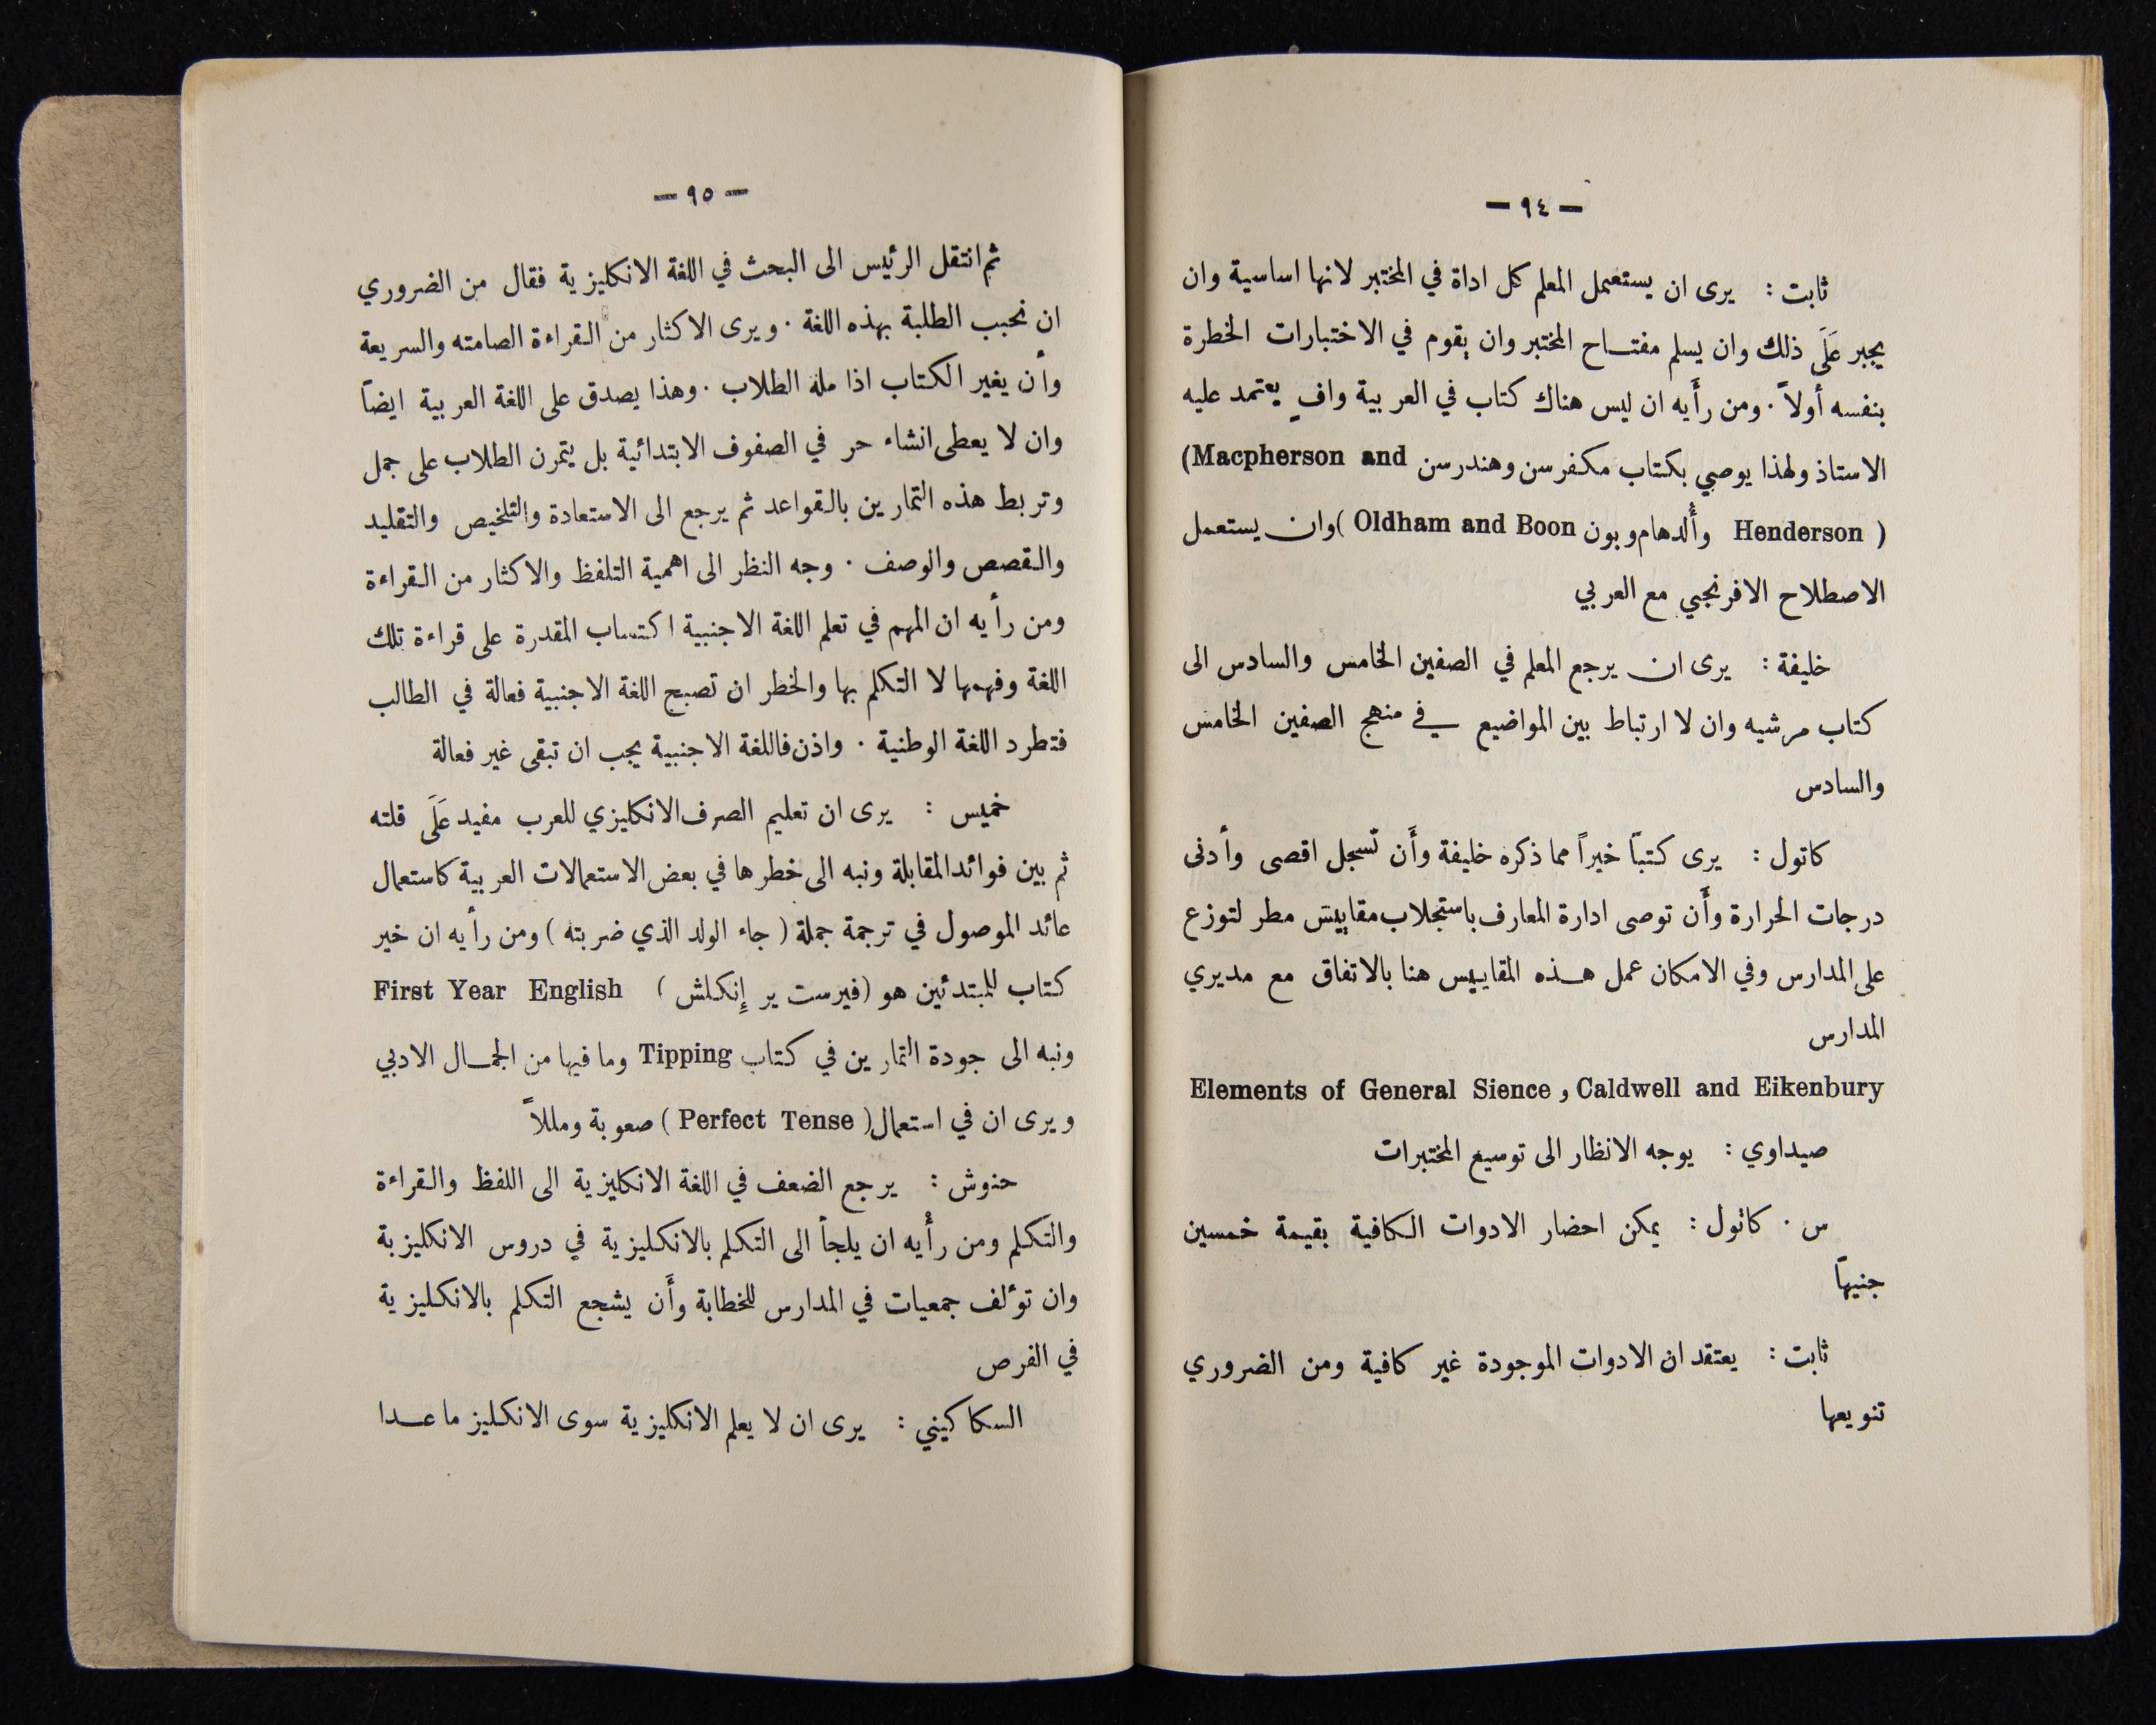 — ٩٤ —
ثابت : يرى ان يستعمل المعلم كل اداة في المختبر لانها اساسية وان
يجبر عَلَى ذلك وان يسلم مفتاح المختبر وان يقوم في الاختبارات الخطرة
بنفسه أولاً . ومن رأَيه ان ليس هناك كتاب في العربية وافٍ يعتمد عليه
الاستاذ ولهذا يوصي بكتاب مكفرسن وهندرسن (Macpherson and
Henderson ) وأُلدهام وبون Oldham and Boon ) وان يستعمل
الاصطلاح الافرنجي مع العربي
خليفة : يرى ان يرجع المعلم في الصفين الخامس والسادس الى
كتاب مرشيه وان لا ارتباط بين المواضيع في منهج الصفين الخامس
والسادس
كاتول : يرى كتباً خيراً مما ذكره خليفة وأَن تسجل اقصى وأدنى
درجات الحرارة وأَن توصى ادارة المعارف باستجلاب مقاييس مطر لتوزع
على المدارس وفي الامكان عمل هذه المقاييس هنا بالاتفاق مع مديري
المدارس
Elements of General Sience و Caldwell and Eikenbury
صيداوي : يوجه الانظار الى توسيع المختبرات
س . كاتول : يمكن احضار الادوات الكافية بقيمة خمسين
جنيهاً
ثابت : يعتقد ان الادوات الموجودة غير كافية ومن الضروري
تنويعها
— ٩٥ —
ثم انتقل الرئيس الى البحث في اللغة الانكليزية فقال من الضروري
ان نحبب الطلبة بهذه اللغة . ويرى الاكثار من القراءة الصامته والسريعة
وأن يغير الكتاب اذا مله الطلاب . وهذا يصدق على اللغة العربية ايضاً
وان لا يعطى انشاء حر في الصفوف الابتدائية بل يتمرن الطلاب على جمل
وتربط هذه التمارين بالقواعد ثم يرجع الى الاستعادة والتلخيص والتقليد
والقصص والوصف . وجه النظر الى اهمية التلفظ والاكثار من القراءة
ومن رأيه ان المهم في تعلم اللغة الاجنبية اكتساب المقدرة على قراءة تلك
اللغة وفهمها لا التكلم بها والخطر ان تصبح اللغة الاجنبية فعالة في الطالب
فتطرد اللغة الوطنية . واذن فاللغة الاجنبية يجب ان تبقى غير فعالة
خميس : يرى ان تعليم الصرف الانكليزي للعرب مفيد عَلَى قلته
ثم بين فوائد المقابلة ونبه الى خطرها في بعض الاستعمالات العربية كاستعمال
عائد الموصول في ترجمة جملة ( جاء الولد الذي ضربته ) ومن رأيه ان خير
كتاب للمبتدئين هو (فيرست ير إِنكلش ) First Year English
ونبه الى جودة التمارين في كتاب Tipping وما فيها من الجمال الادبي
ويرى ان في استعمال ( Perfect Tense ) صعوبة ومللاً
حنوش : يرجع الضعف في اللغة الانكليزية الى اللفظ والقراءة
والتكلم ومن رأْيه ان يلجأ الى التكلم بالانكليزية في دروس الانكليزية
وان تؤلف جمعيات في المدارس للخطابة وأَن يشجع التكلم بالانكليزية
في الفرص
السكاكيني : يرى ان لا يعلم الانكليزية سوى الانكليز ما عدا